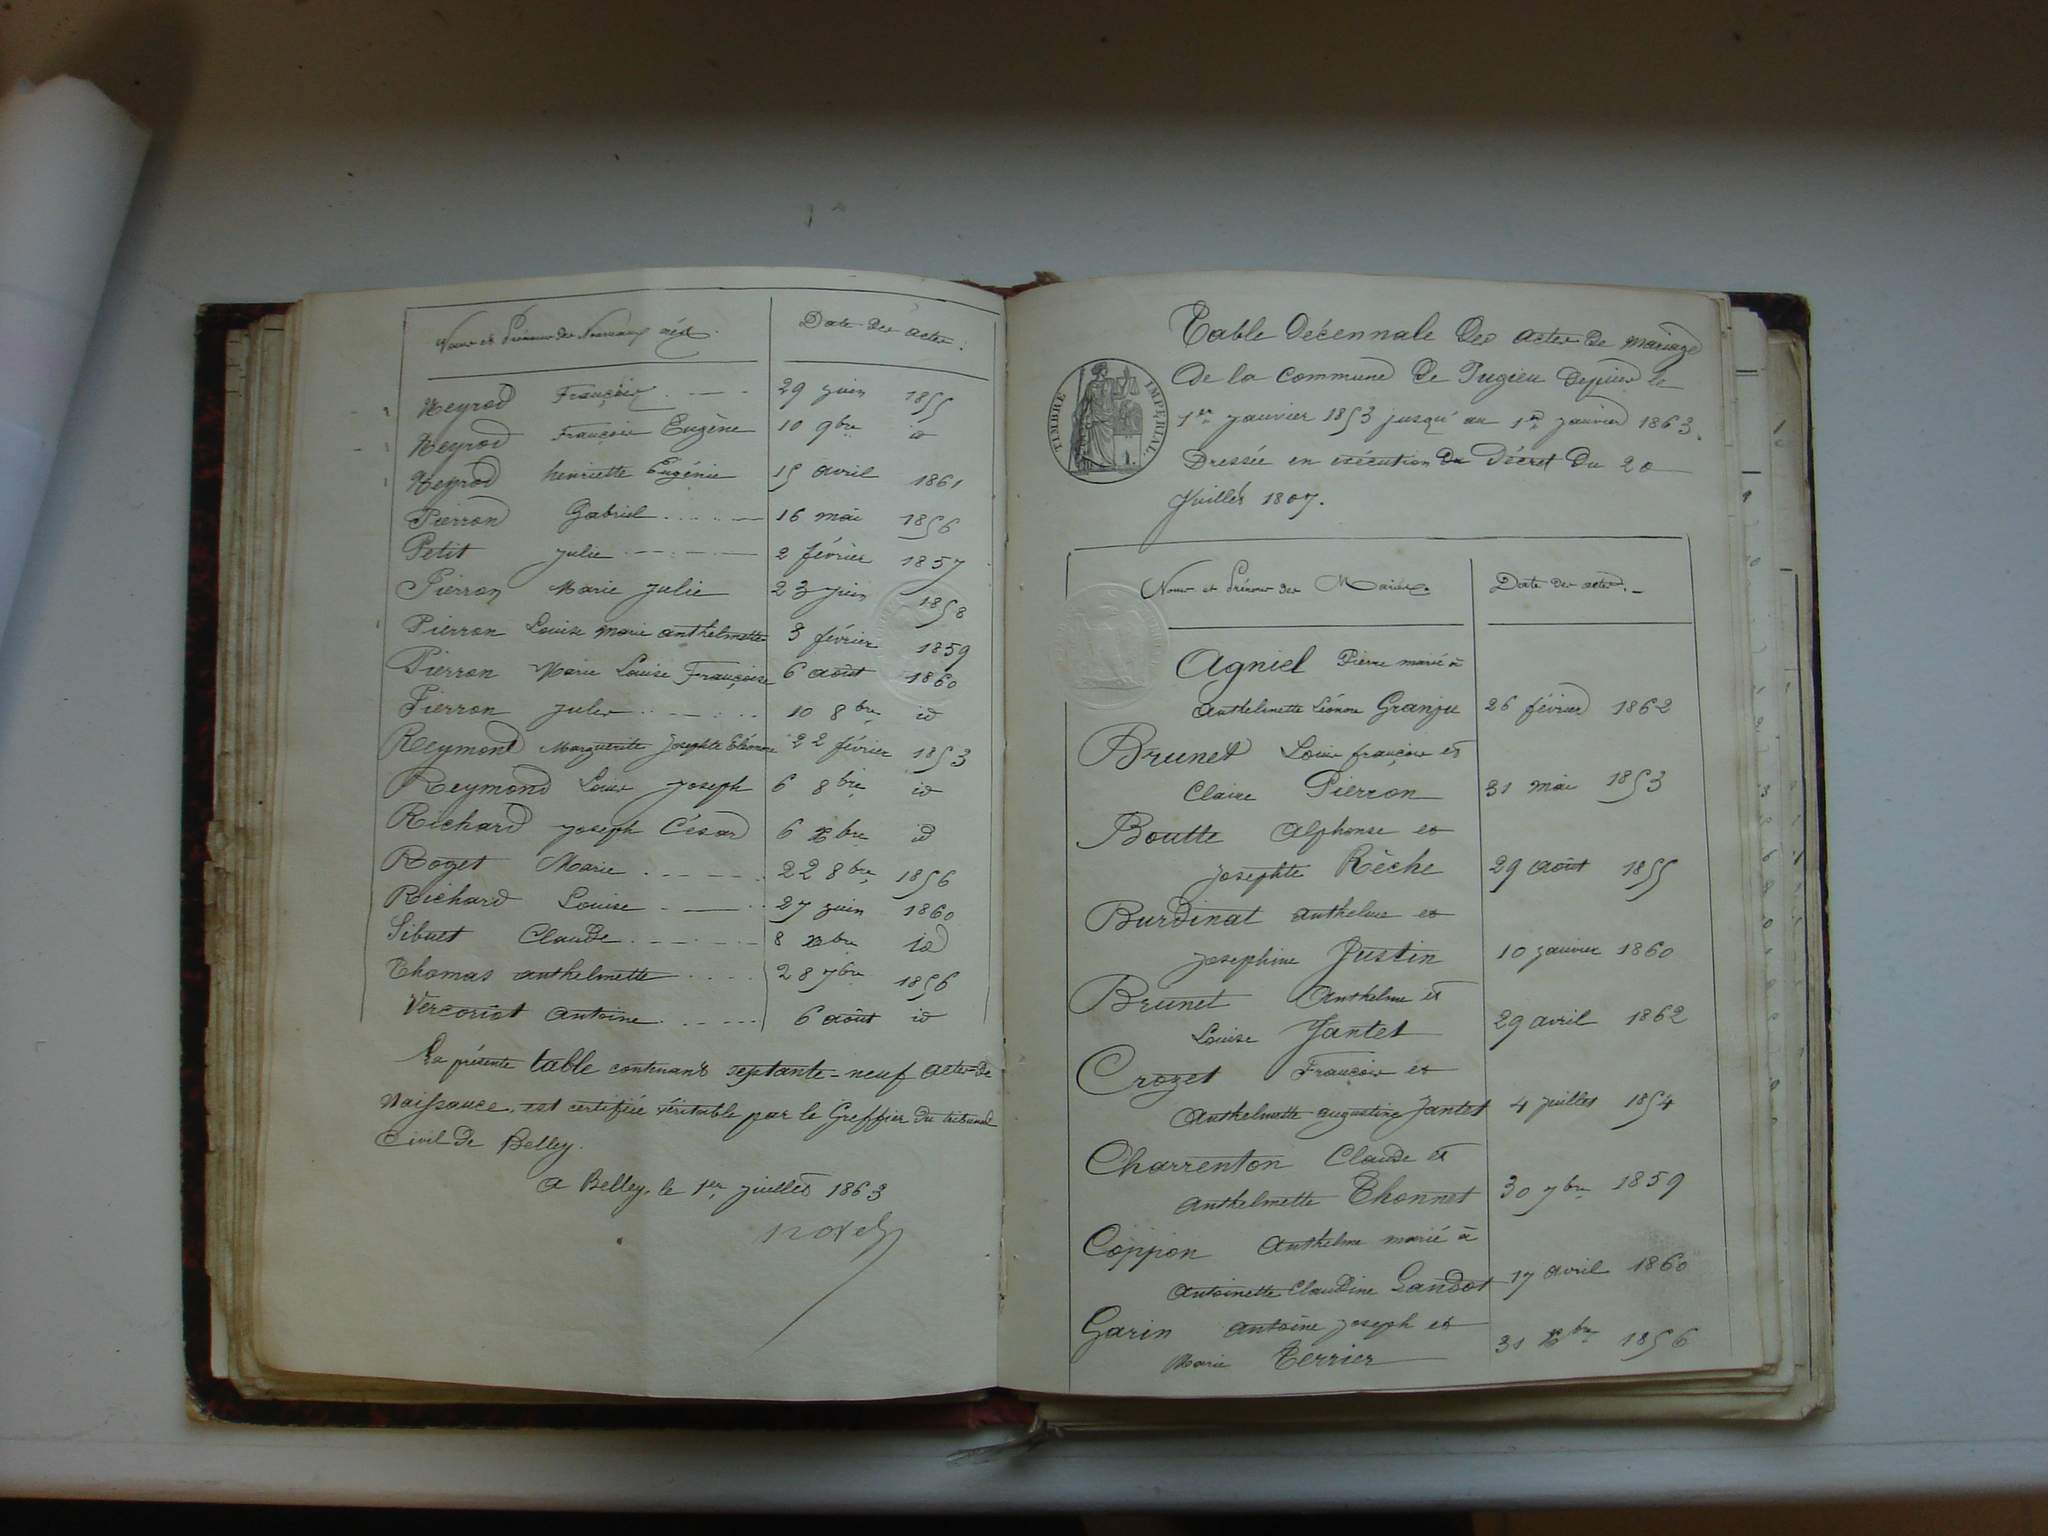 Noms et Prénoms des Nouveaux nés.
Date des actes.
Neyrod François 29 juin 1855
Neyrod François Eugène 10 9bre id
Neyrod henriette Eugénie 15 avril 1861
Pierron Gabriel 16 mai 1856
Petit Julie 2 février 1857
Pierron Marie Julie 23 juin 1858
Pierron Louise Marie anthelmette 3 février 1859
Pierron Marie Louise Françoise 6 août 1860
Pierron Jules 10 8bre id
Reymond Marguerite Josephte Eléonore 22 février 1853
Reymond Louis Joseph 6 8bre id
Richard Joseph César 6 Xbre id
Roget Marie 22 8bre 1856
Richard Louise 27 juin 1860
Sibuet Claude 8 Xbre id
Thomas anthelmette 28 7bre 1856
Vercoriot antoine 6 août id
La présente table contenant septante-neuf actes de
Naissance, est certifiée véritable par le Greffier du tribunal
Civil de Belley.
a Belley, le 1er juillet 1863
TIMBRE IMPERIAL.
Table Décennale des actes de mariage
de la commune de Pugieu depuis le
1er janvier 1853 jusqu'au 1er janvier 1863.
Dressée en exécution du Décret du 20
Juillet 1807.
Noms et Prénoms des Mariés.
Date des actes.
Agniel Pierre marié à
anthelmette Léonore Granju 26 février 1862
Brunet Louis françois et
Claire Pierron 31 mai 1853
Boutte Alphonse et
Josephte Rèche 29 août 1855
Burdinat anthelme et
Josephine Justin 10 janvier 1860
Brunet Anthelme et
Louise Jantet 29 avril 1862
Crozet François et
Anthelmette augustine Jantet 4 juillet 1854
Charrenton Claude et
anthelmette Thonnet 30 7bre 1859
Coppon Anthelme marié à
Antoinette Claudine Landot 17 avril 1860
Garin antoine Joseph et
Marie Terrier 31 Xbre 1856